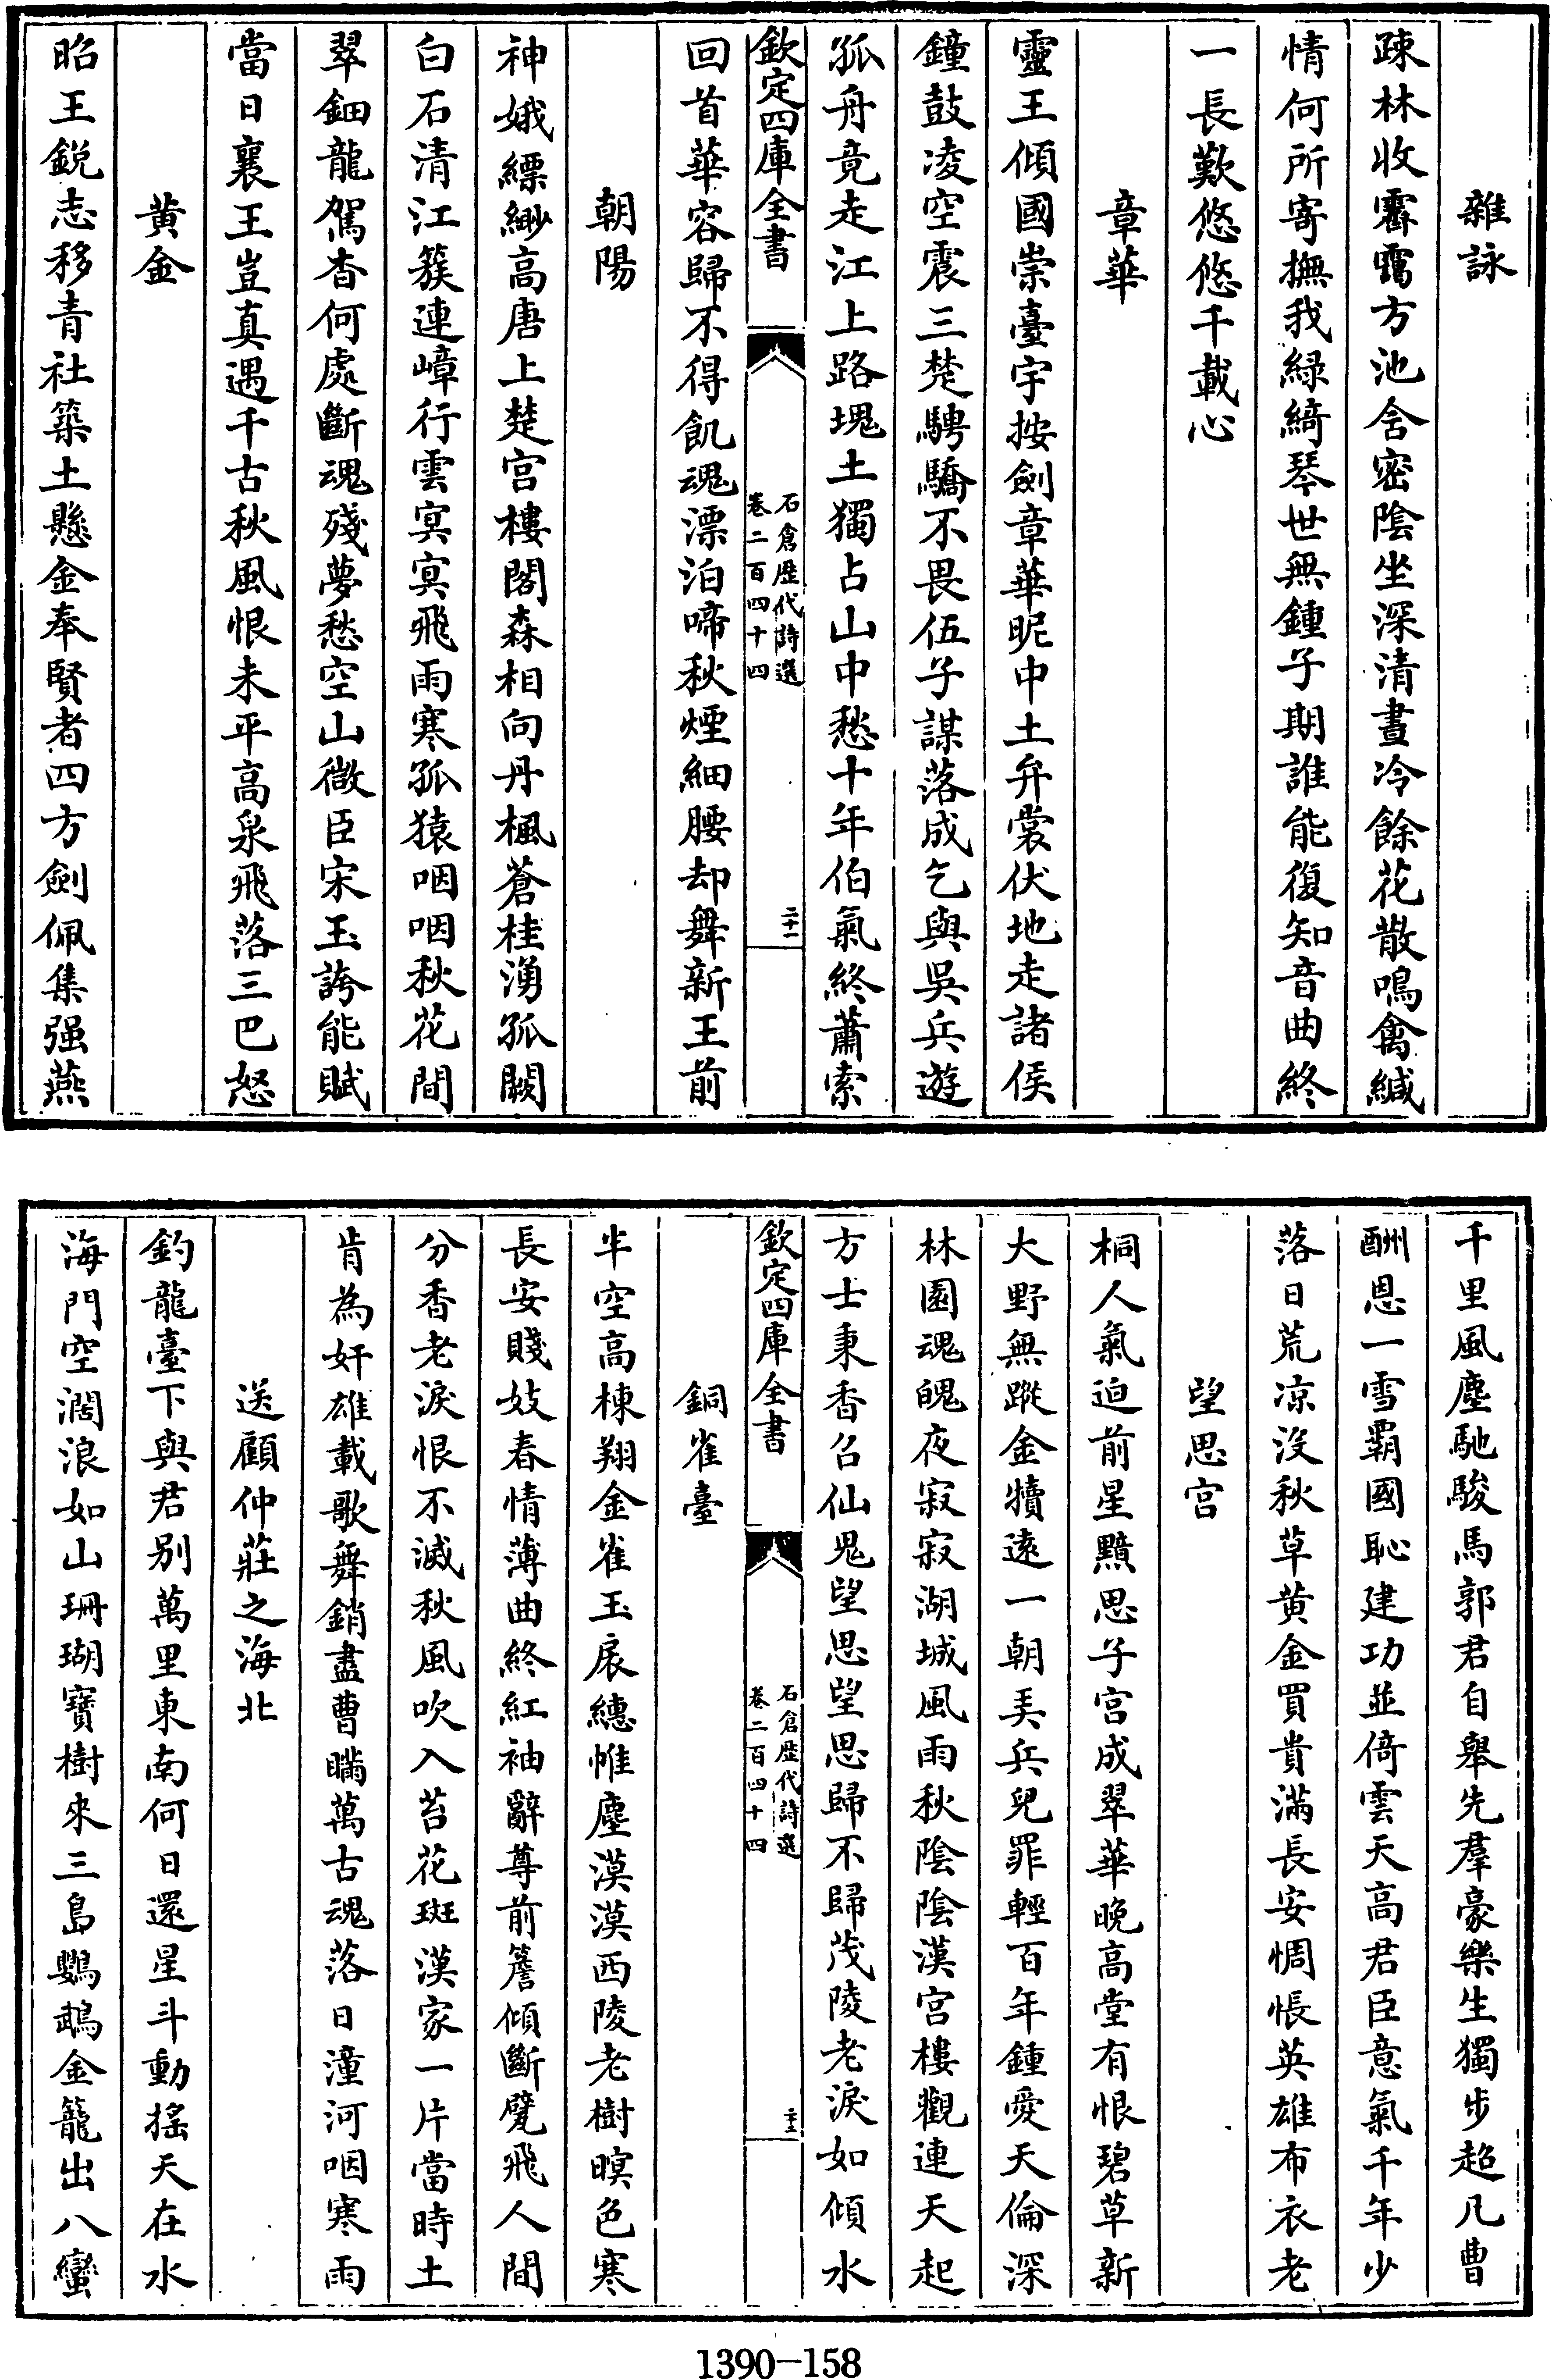 雜詠
疎林收霽靄方池含密陰坐深清晝冷餘花散鳴禽緘
情何所寄撫我緑綺琴世無鍾子期誰能復知音曲終
一長歎悠悠千載心
章華
靈王傾國崇臺宇按劍章華昵中土弁裳伏地走諸侯
鐘鼓凌空震三楚騁驕不畏伍子謀落成乞與吳兵遊
孤舟竟走江上路塊土獨占山中愁十年伯氣終蕭索
欽定四庫全書
石倉歴代詩選
卷二百四十四
二十一
回首華容歸不得飢魂漂泊啼秋煙細腰却舞新王前
朝陽
神娥縹緲高唐上楚宫樓閣森相向丹楓蒼桂湧孤闕
白石清江簇連嶂行雲㝠㝠飛雨寒孤猿咽咽秋花間
翠鈿龍駕杳何處斷魂殘夢愁空山微臣宋玉誇能賦
當日襄王豈真遇千古秋風恨未平高泉飛落三巴怒
黄金
昭王鋭志移青社築土懸金奉賢者四方劍佩集强燕
千里風塵馳駿馬郭君自舉先羣豪樂生獨步超凡曹
酬恩一雪霸國恥建功並倚雲天高君臣意氣千年少
落日荒凉沒秋草黄金買貴滿長安惆悵英雄布衣老
望思宫
桐人氣迫前星黯思子宫成翠華晚高堂有恨碧草新
大野無蹤金犢遠一朝弄兵兒罪輕百年鍾愛天倫深
林園魂魄夜寂寂湖城風雨秋陰陰漢宫樓觀連天起
方士秉香召仙鬼望思望思歸不歸茂陵老淚如傾水
欽定四庫全書
石倉歴代詩選
卷二百四十四
二十二
銅雀臺
半空高棟翔金雀玉扆繐帷塵漠漠西陵老樹暝色寒
長安賤妓春情薄曲終紅袖辭尊前簷傾斷甓飛人間
分香老淚恨不滅秋風吹入苔花斑漢家一片當時土
肯為奸雄載歌舞銷盡曹瞞萬古魂落日潼河咽寒雨
送顧仲莊之海北
釣龍臺下與君别萬里東南何日還星斗動摇天在水
海門空濶浪如山珊瑚寶樹來三島鸚鵡金籠出八蠻
1390—158